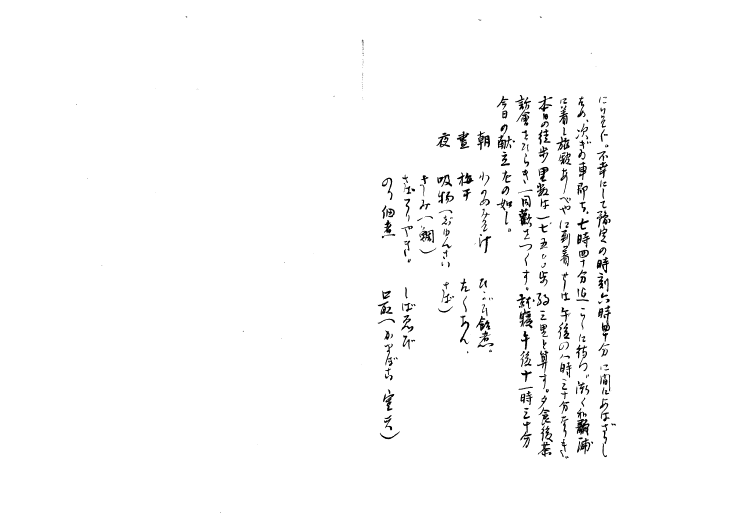 にいそぐ。不幸にして豫定の時刻六時四十分に間にあはざりし
ため、次ぎの車即ち、七時四十分迄こゝに待つ。漸く和歌浦
に着し旅館あしべやに到着せしは午後の八時三十分なりき。
本日の徒歩里数は一七五〇〇歩 約三里と算す。夕食後茶
話會をひらき一同歡をつくす。就寝午後十一時三十分
今日の献立左の如し。
朝 わかめみそ汁 ひじき飴煮。
晝 梅干 たくあん、
夜 吸物(じゅんさい さば)
さしみ(鯛)
さばてりやき。 しばゑび
のり佃煮 口取(かまぼこ